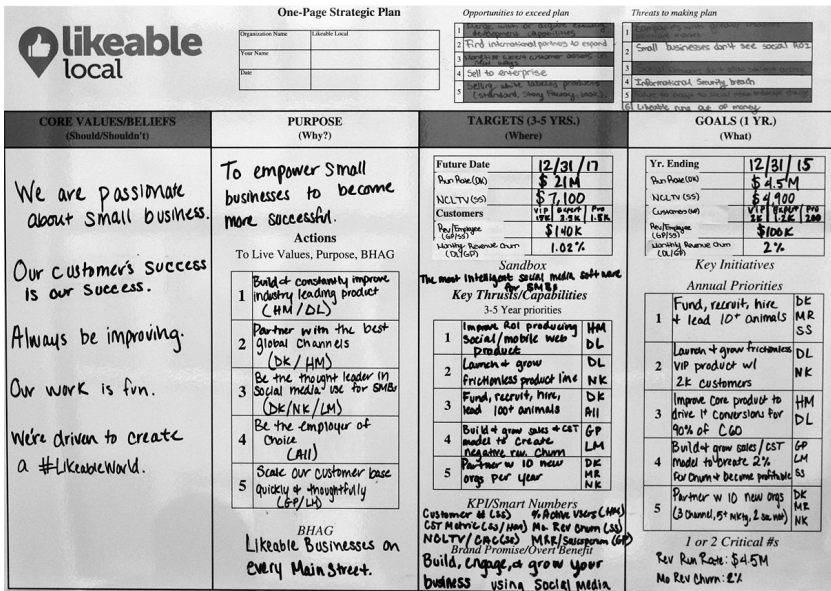 likeable
local
One-Page Strategic Plan
Organization Name Likeable Local
Your Name
Date
Opportunities to exceed plan
1
2 Find international partners to expand
3
4 Sell to enterprise
5
Threats to making plan
1
2 Small businesses don't see social ROI
3
4 Informational Security breach
5
6 Likeable runs out of money
CORE VALUES/BELIEFS
(Should/Shouldn't)
We are passionate
about small business.
Our customer's success
is our success.
Always be improving.
Our work is fun.
We're driven to create
a #LikeableWorld.
PURPOSE
(Why?)
To empower small
businesses to become
more successful.
Actions
To Live Values, Purpose, BHAG
1 Build & constantly improve
industry leading product
(HM/DL)
2 Partner with the best
global channels
(DK/HM)
3 Be the thought leader in
social media use for SMBs
(DK/NK/LM)
4 Be the employer of
choice
(All)
5 Scale our customer base
quickly & thoughtfully
(GP/LM)
BHAG
Likeable Businesses on
every Main Street.
TARGETS (3-5 YRS.)
(Where)
Future Date 12/31/17
Run Rate (DK) $21M
NCLTV (SS) $7,100
Customers VIP Expert Pro
15K 3.5K 1.5K
Rev/Employee
(GP/SS) $140K
Monthly Revenue Churn
(DL/GP) 1.02%
Sandbox
The most intelligent social media software
for SMBs
Key Thrusts/Capabilities
3-5 Year priorities
1 Improve ROI producing
social/mobile web
product
HM
DL
2 Launch & grow
frictionless product line
DL
NK
3 Fund, recruit, hire,
lead 100+ animals
DK
All
4 Build & grow sales & CST
model to create
negative rev. churn
GP
LM
5 Partner w 10 new
orgs per year
DK
MR
NK
KPI/Smart Numbers
Customer # (SS) % Active Users (HM)
CST Metric (SS/HM) Mo. Rev Churn (SS)
NCLTV/CAC (SS) MRR/Salesperson (GP)
Brand Promise/Overt Benefit
Build, engage, & grow your
business using Social Media
GOALS (1 YR.)
(What)
Yr. Ending 12/31/15
Run Rate (DK) $4.5M
NCLTV (SS) $4,900
Customers VIP Expert Pro
2K 1.2K 200
Rev/Employee
(GP/SS) $106K
Monthly Revenue Churn
(DL/GP) 2%
Key Initiatives
Annual Priorities
1 Fund, recruit, hire
& lead 10+ animals
DK
MR
SS
2 Launch & grow frictionless
VIP product w/
2K customers
DL
NK
3 Improve core product to
drive 1+ conversions for
90% of CGO
HM
DL
4 Build & grow sales/CST
model to create 2%
rev churn & become profitable
GP
LM
SS
5 Partner w 10 new orgs
(3 channel, 5+ mktg, 2
DK
MR
NK
1 or 2 Critical #s
Rev Run Rate: $4.5M
Mo Rev Churn: 2%